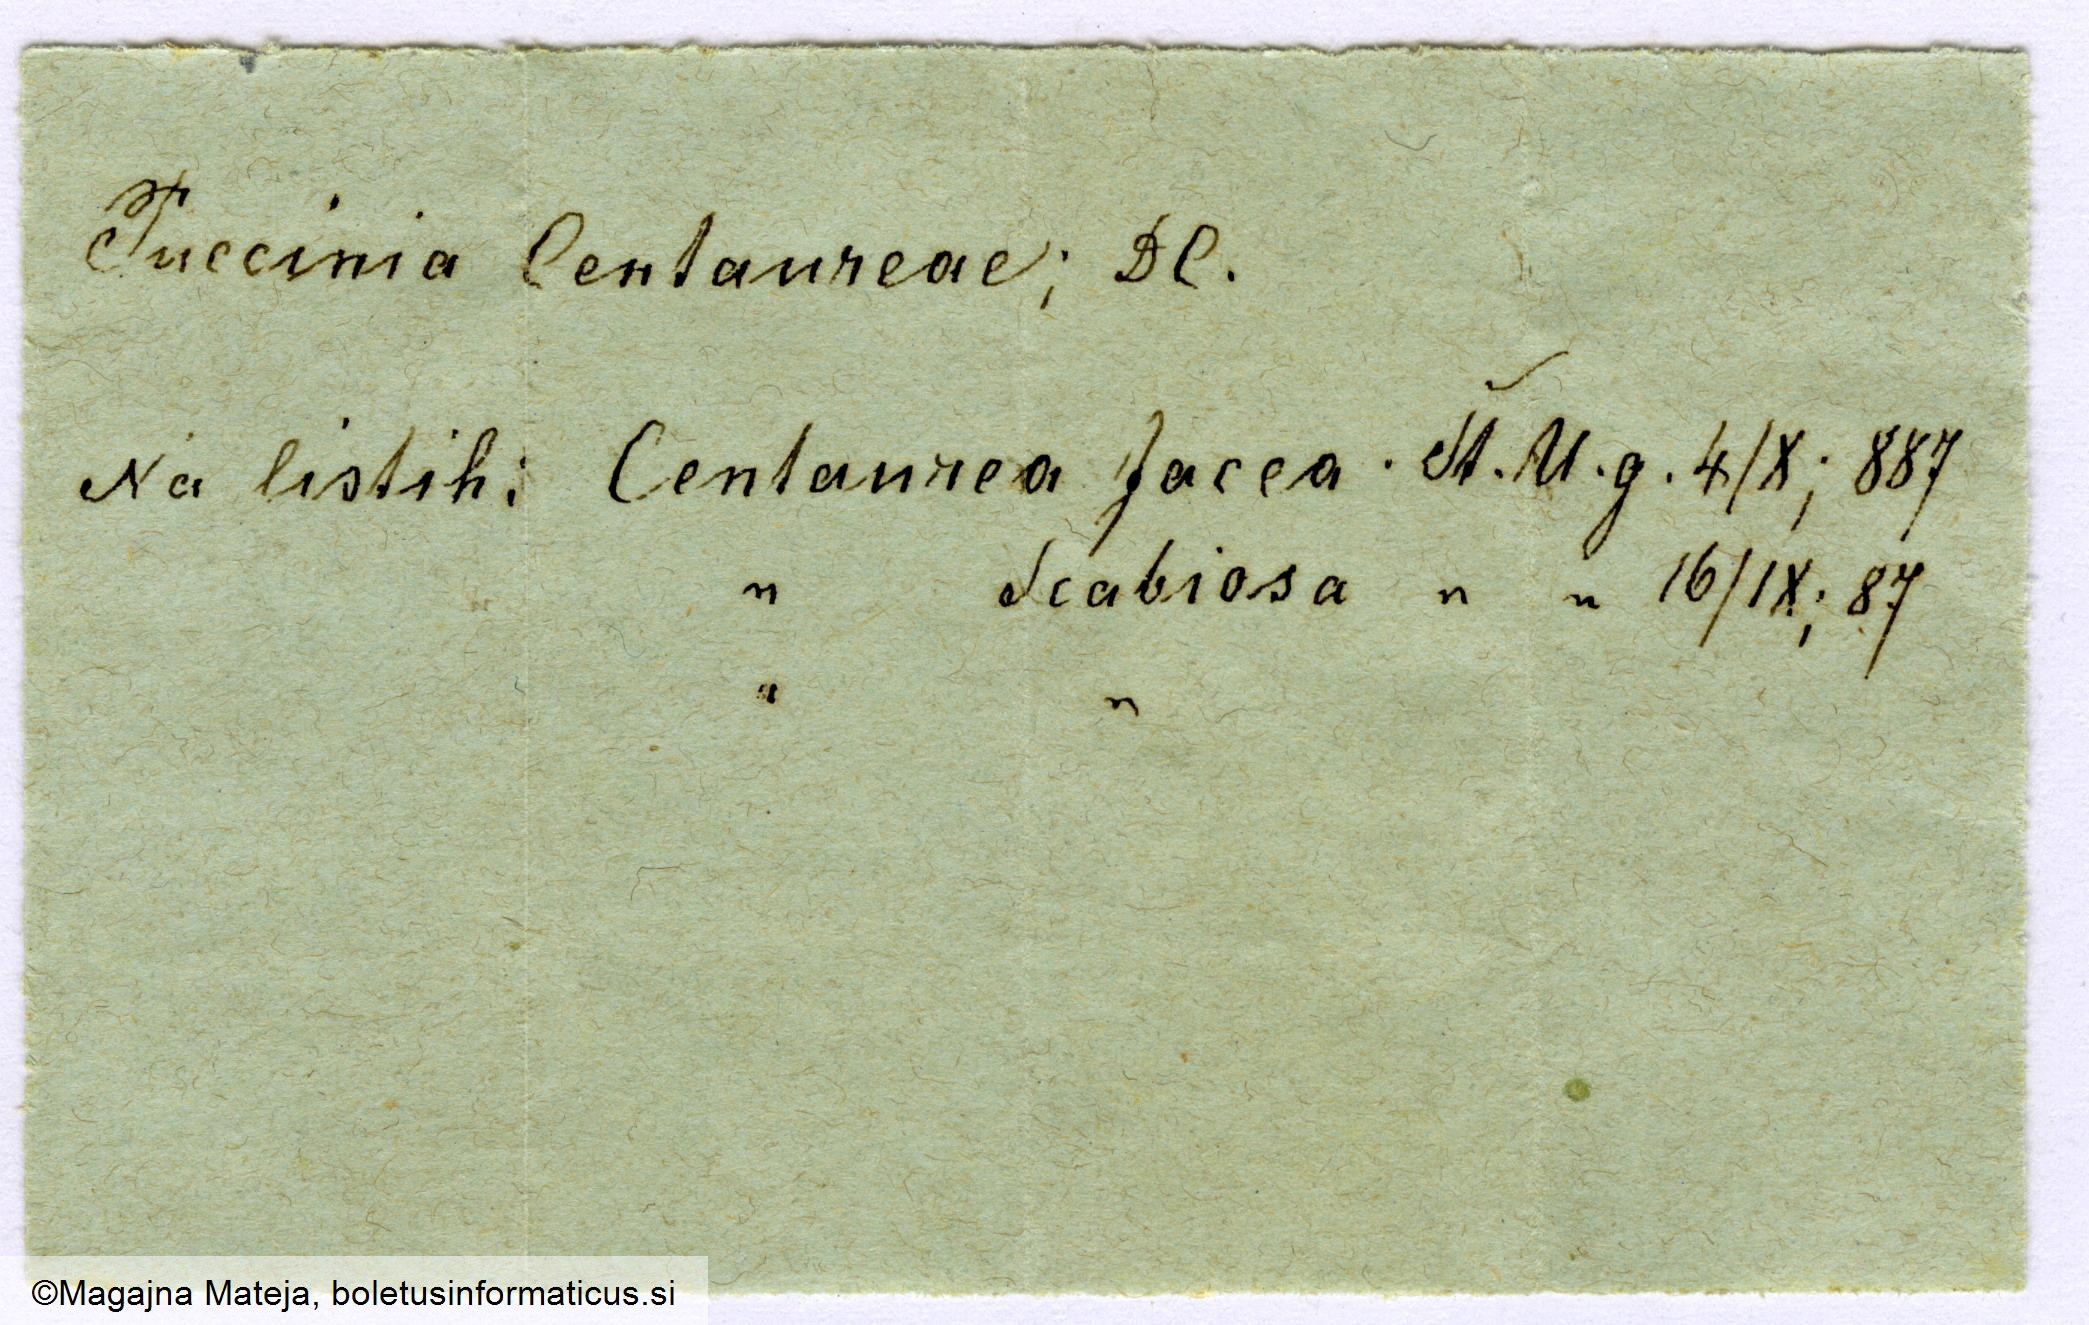 Puccinia Centaureae; DC.
Na listih: Centaurea Jacea. Št. U. g. 4/X; 887
" Scabiosa " " 16/IX; 87
" "
©Magajna Mateja, boletusinformaticus.si